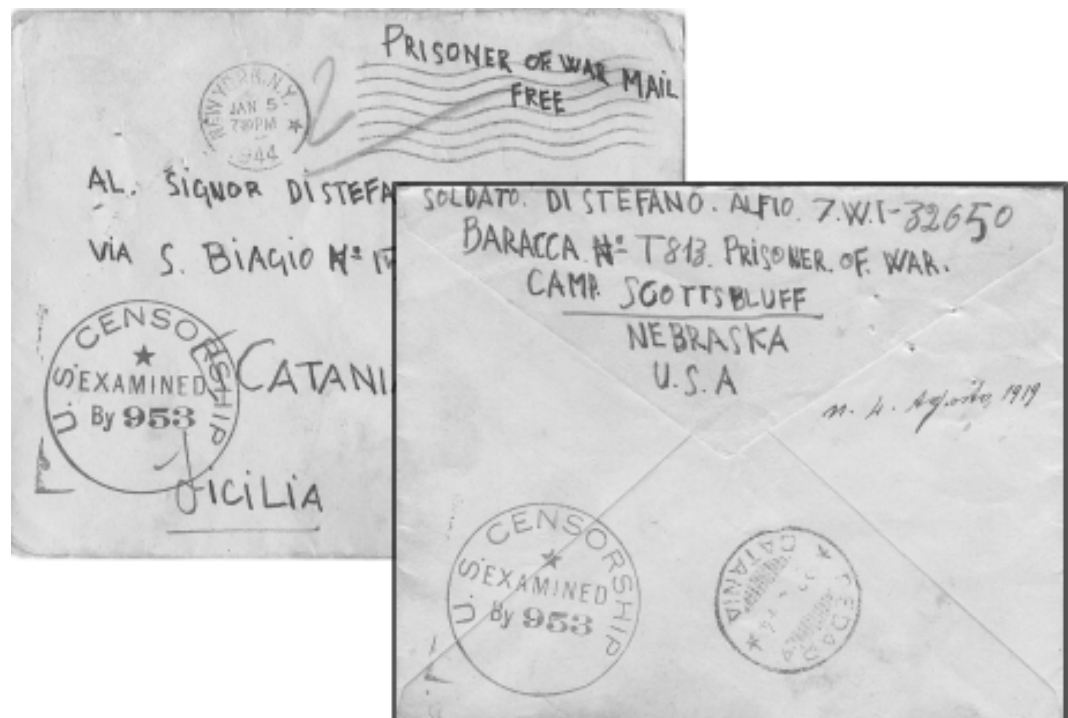 PRISONER OF WAR MAIL
FREE
NEW YORK, N.Y.
JAN 5
7 30 PM
1944
2
AL. SIGNOR DISTEFA
VIA S. BIAGIO Nº
CATANI
SICILIA
U.S. CENSORSHIP
EXAMINED
By 953
SOLDATO. DI STEFANO. ALFIO. 7.W.I-32650
BARACCA Nº T813. PRISONER. OF. WAR.
CAMP. SCOTTSBLUFF
NEBRASKA
U.S.A
n. 4. Agosto 1919
U.S. CENSORSHIP
EXAMINED
By 953
PEDARA
CATANIA